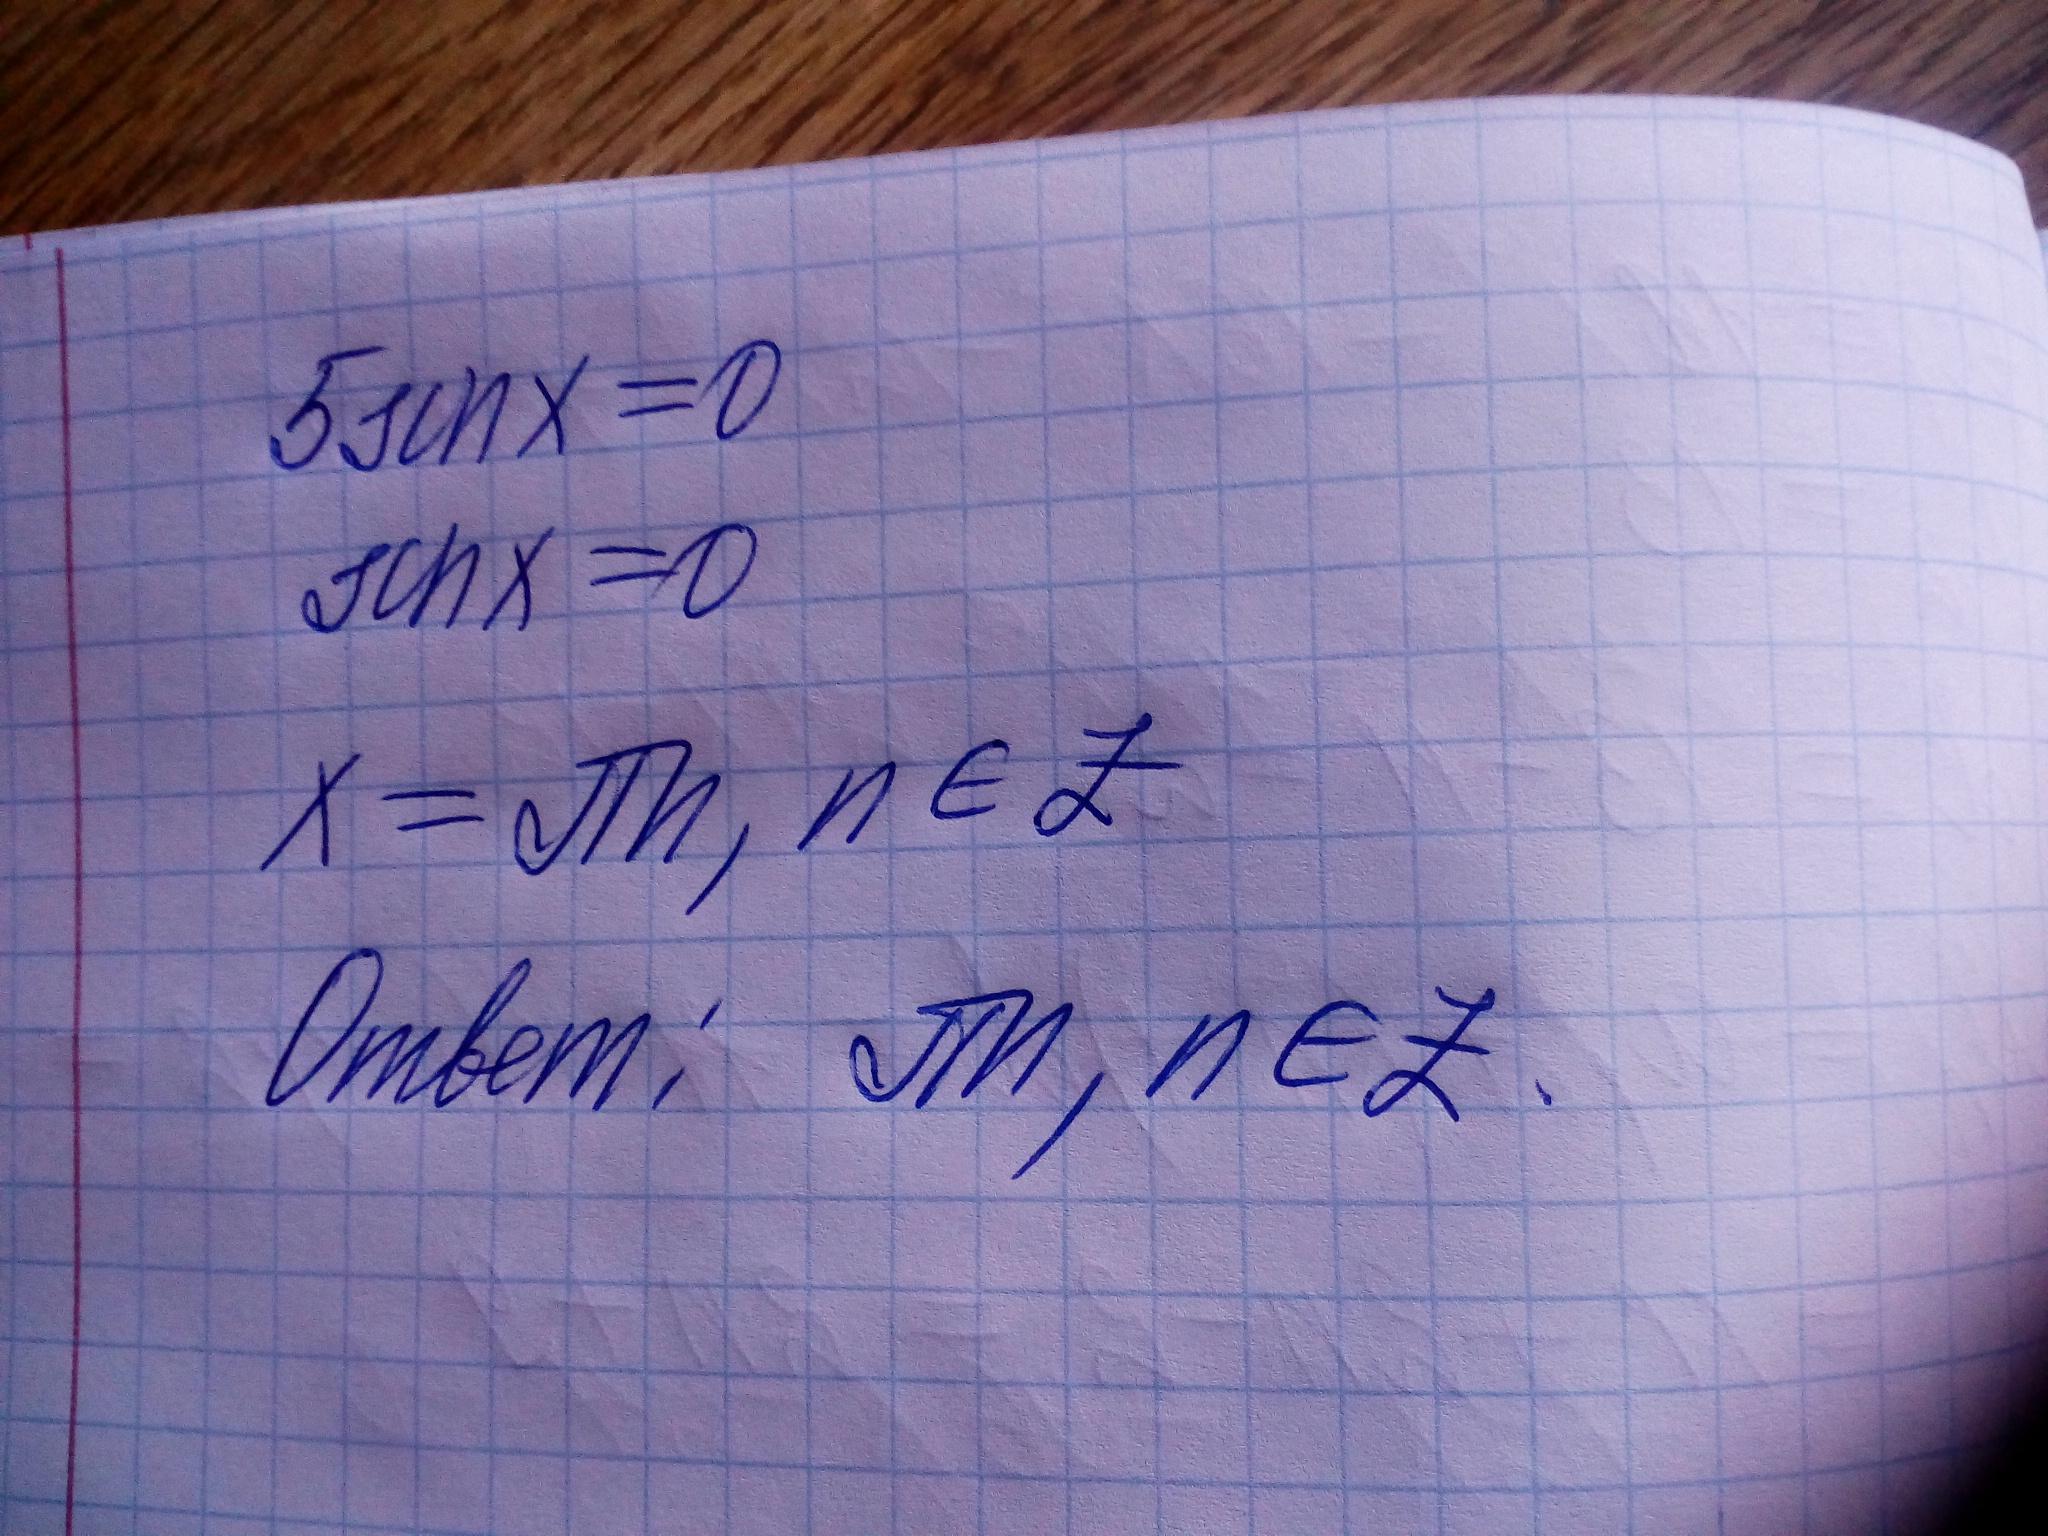 5sinx=0
sinx=0
x=πn, n∈Z
Ответ: πn, n∈Z.